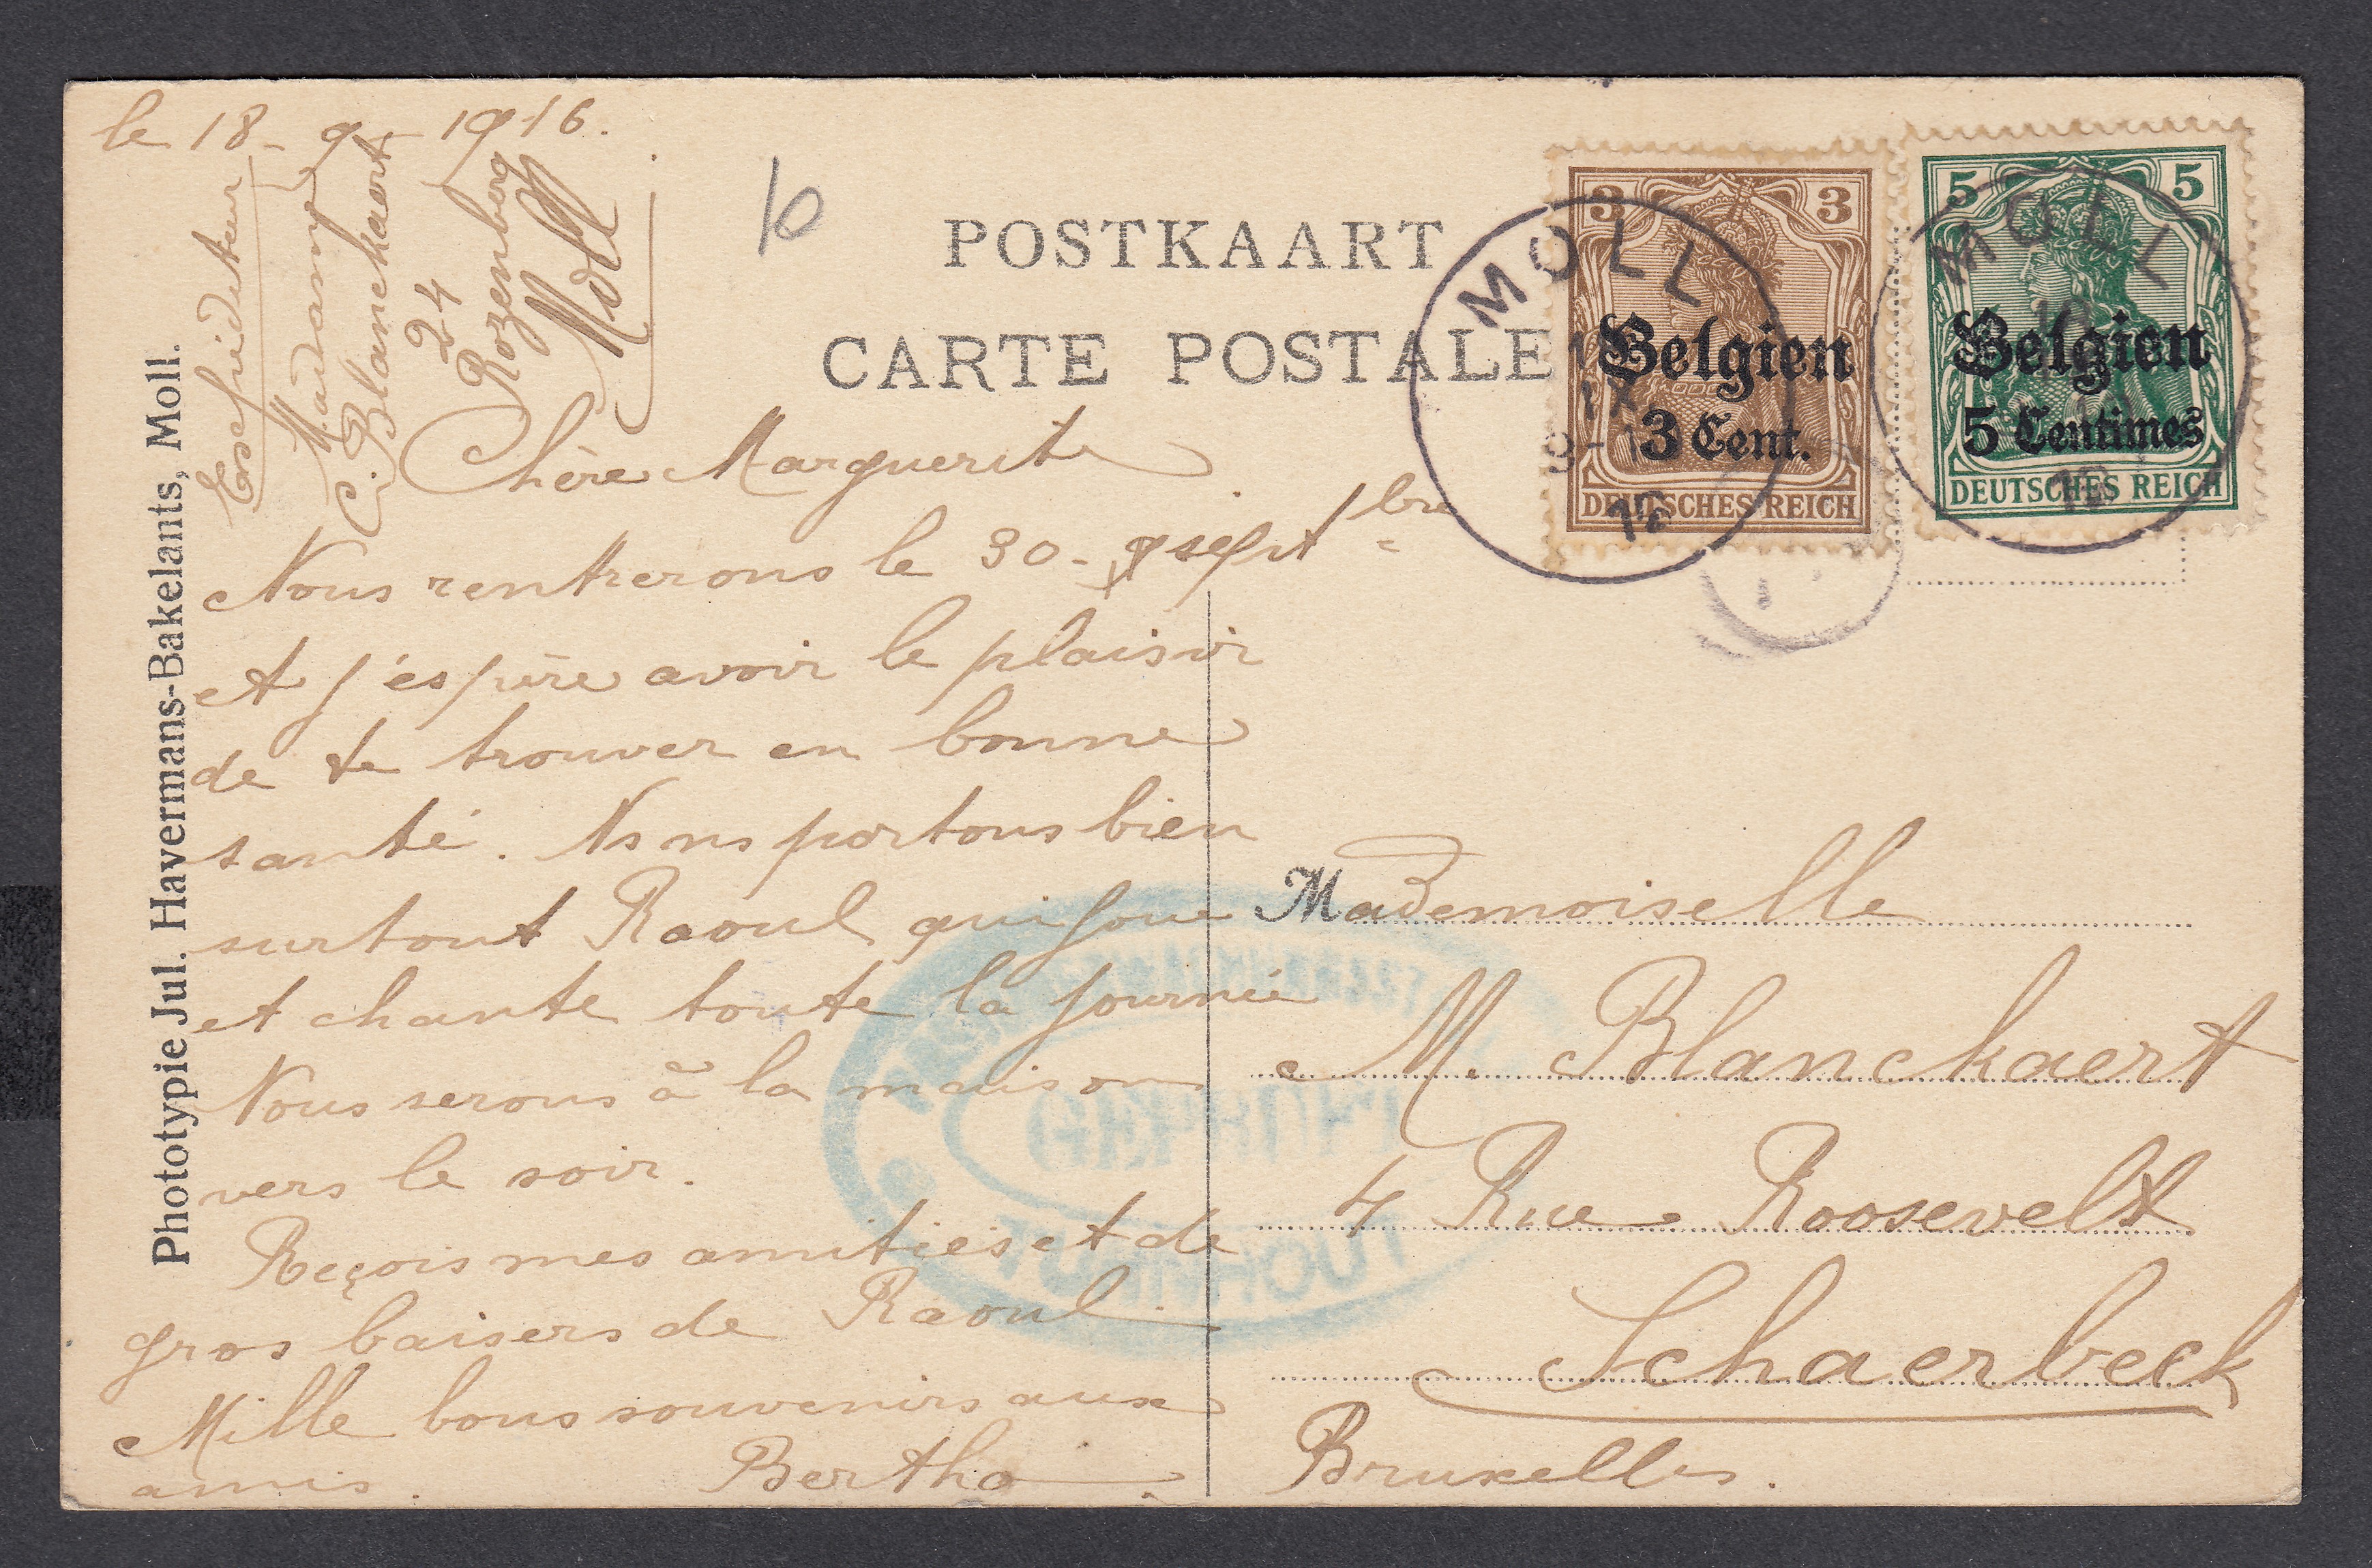 le 18 - 9 - 1916.
Expéditeur
Madame
C. Blanckaert
24
Rozenberg
Moll
10
POSTKAART
CARTE POSTALE
3 3
Belgien
3 Cent.
DEUTSCHES REICH
5 5
Belgien
5 Centimes
DEUTSCHES REICH
MOLL
IX
16
MOLL
16
Phototypie Jul. Havermans-Bakelants, Moll.
Chère Marguerite
Nous rentrerons le 30 - septbre
et j'espère avoir le plaisir
de te trouver en bonne
santé. Ns ns portons bien
surtout Raoul qui joue
et chante toute la journée
Nous serons à la maison
vers le soir.
Reçois mes amitiés et de
gros baisers de Raoul.
Mille bons souvenirs aux
amis. Bertha.
Mademoiselle
M. Blanckaert
4 Rue Roosevelt
Schaerbeek
Bruxelles.
GEPRÜFT